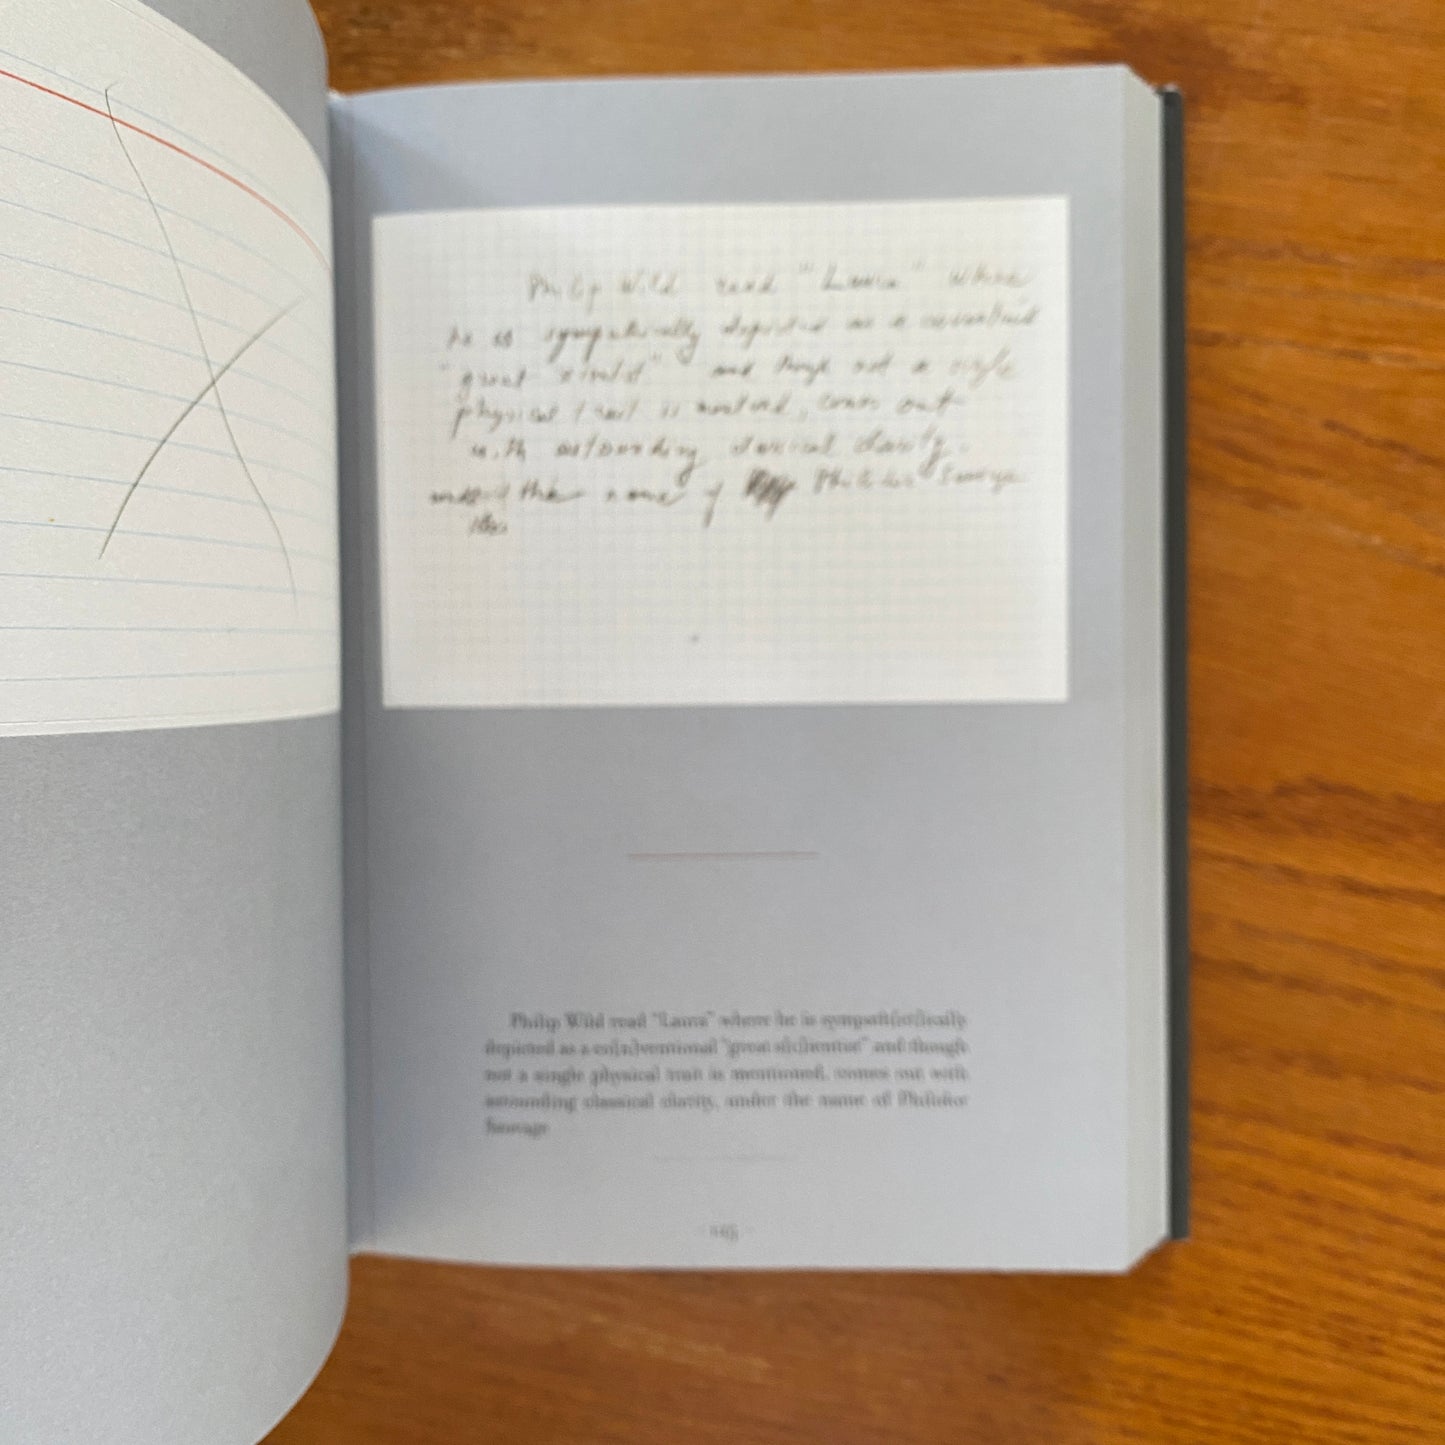 Philip Wild read "Laura" where
he is sympathically depicted as a conventional
"great scientist" and though not a single
physical trait is mentioned, comes out
with astounding classical clarity,
under the name of Philidor Sauvage
Philip Wild read "Laura" where he is sympath[et]ically
depicted as a co[n]ventional "great s[c]ientist" and though
not a single physical trait is mentioned, comes out with
astounding classical clarity, under the name of Philidor
Sauvage